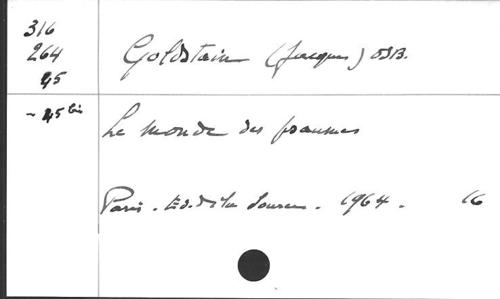 316
264
45
Goldstain (Jacques) OSB.
- 45 bis
Le monde des psaumes
Paris. Ed. de la Source. 1964. 16